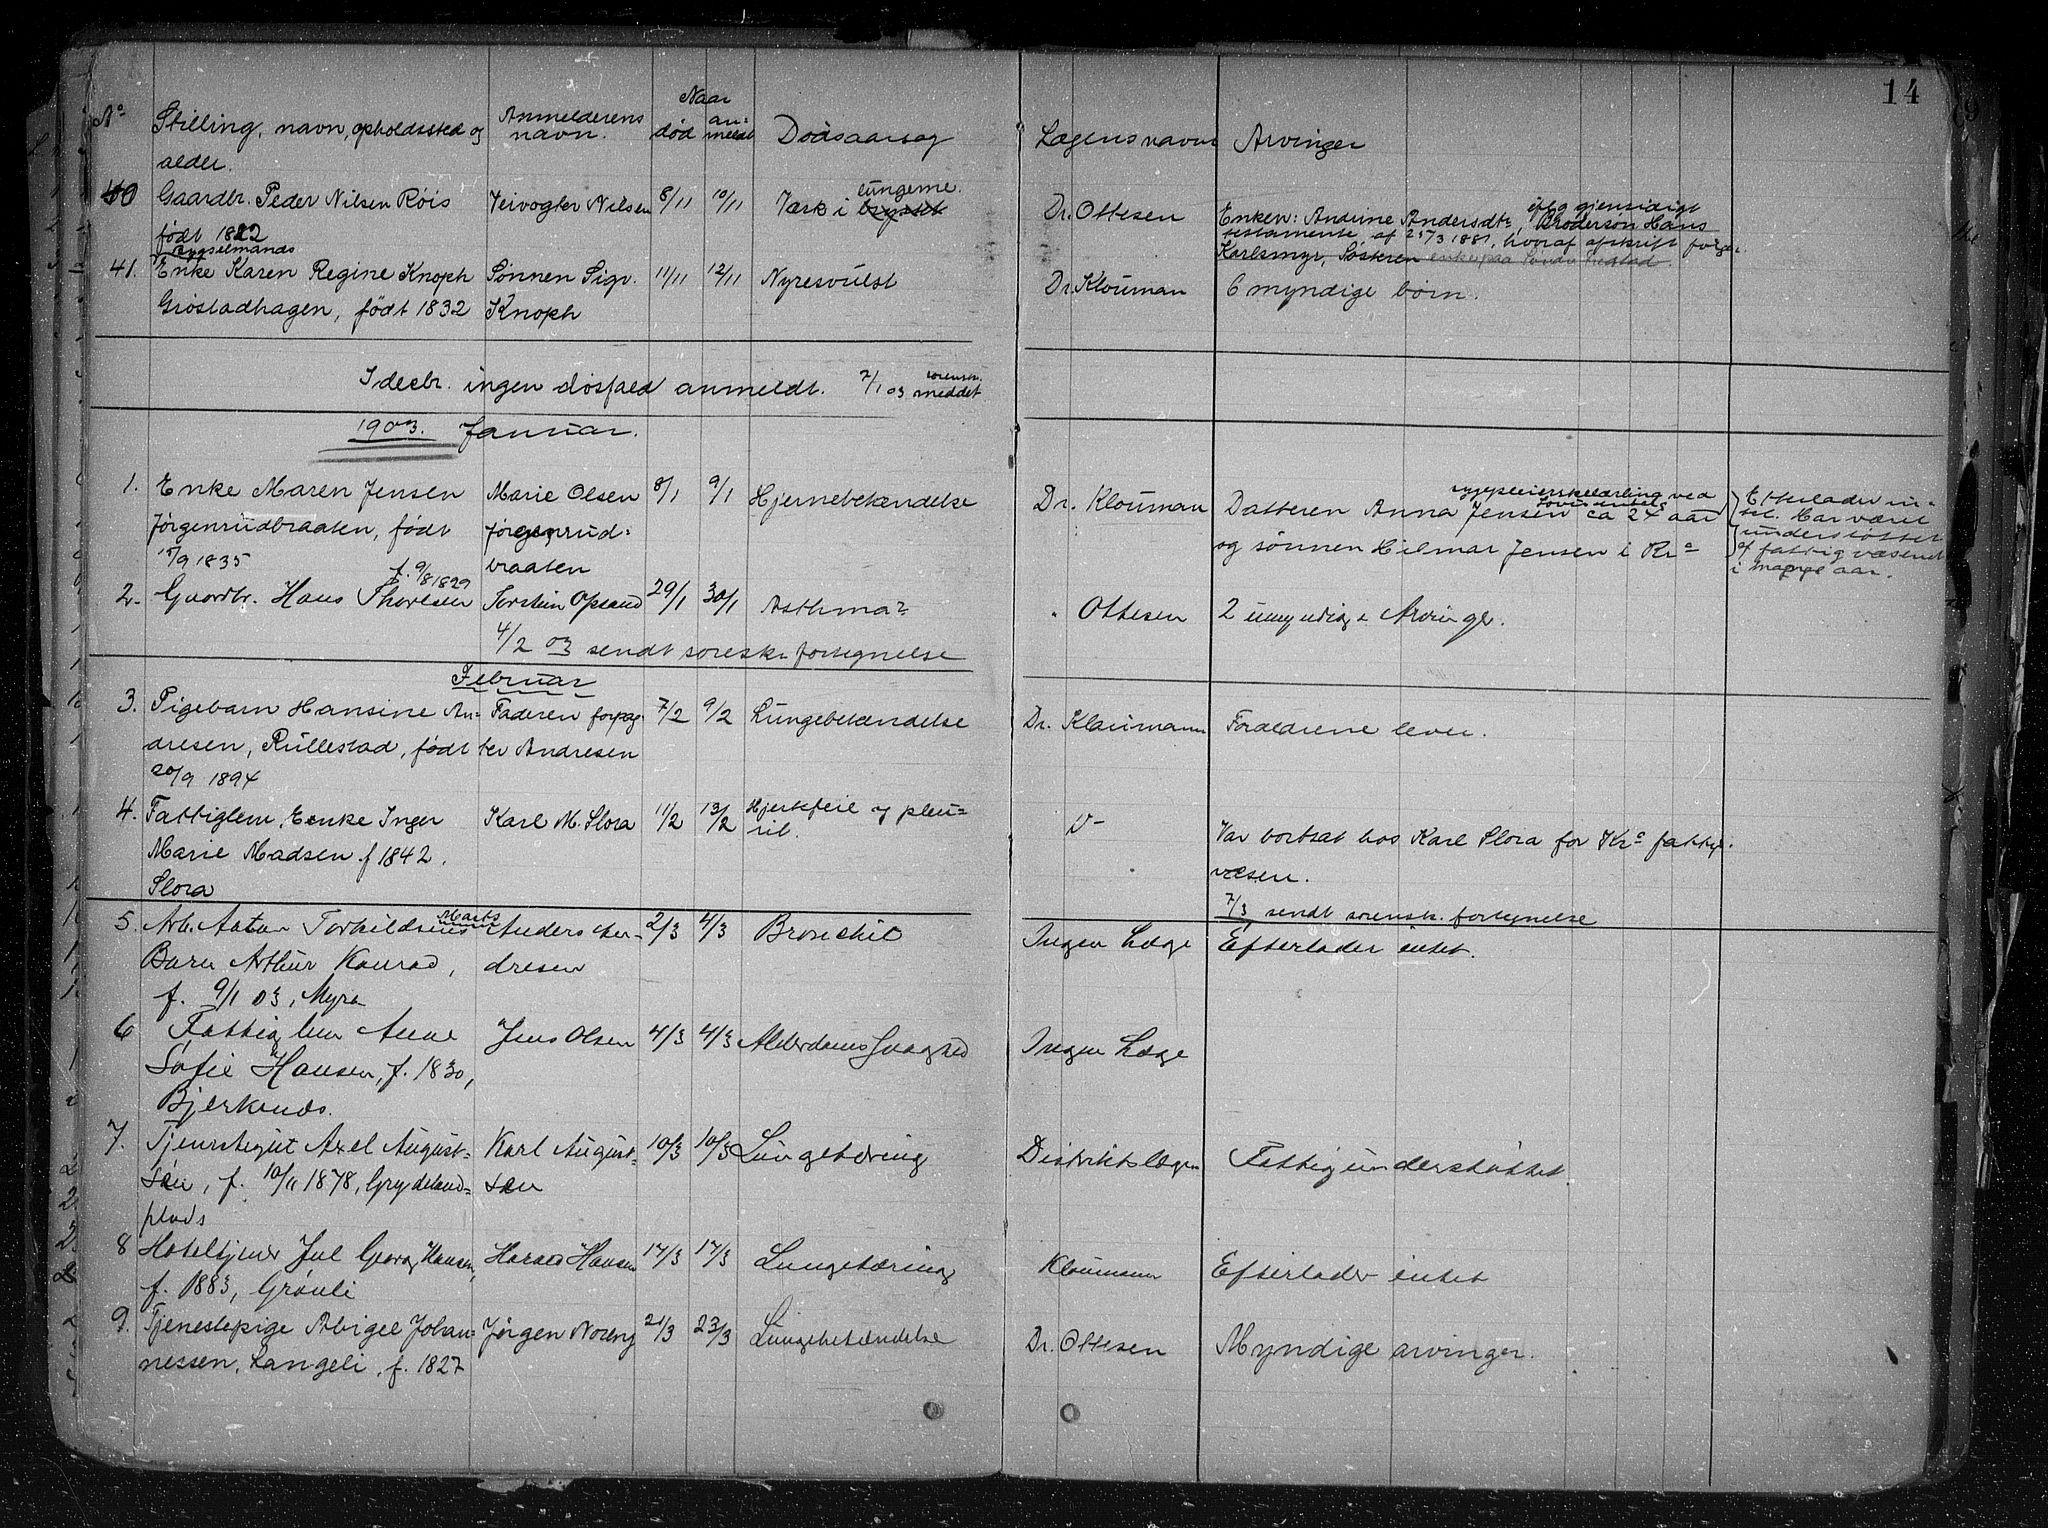 14
No Stilling, navn, opholdssted og alder. Anmelderens navn. Naar død anmeldt Dødsaarsag Lægens navn Arvinger
40 Gaardbr. Peder Nilsen Röis Veivogter Nilsen 8/11 10/11 Værk i brystet lungerne. Dr. Ottesen Enken: Andrine Andersdtr, ifølge gjensidigt
født 1822 testamente af 25/3 1881, hvoraf afskrift
Brodersøn Hans Karlsmyr, Søsteren
41. Enke Karen Regine Knoph Sønnen Sigv. 11/11 12/11 Nyresvulst Dr. Klouman 6 myndige børn.
Grøstadhagen, født 1832 Knoph
I decbr. ingen døsfald anmeldt. 7/1 03 sorensk. meddet
1903. Januar.
1. Enke Maren Jensen Marie Olsen 8/1 9/1 Hjernebetændelse Dr. Klouman Datteren Anna Jensen ca 24 aar
Jørgenrudbraaten, født Jørgenrud- og sønnen Hilmar Jensen i Kra
15/9 1835 braaten
Efterlader in-
tet. Har været
understøttet
af fattigvæsenet
i mange aar.
f. 9/8 1829
2. Gaardbr. Hans Thoresen Torstein Opsand 29/1 30/1 Asthma? " Ottesen 2 umyndige Arvinger.
4/2 03 sendt soreskr fortegnelse
Februar
3. Pigebarn Hansine An- Faderen forpag- 7/2 9/2 Lungebetændelse Dr. Kloumann Forældrene lever.
dresen, Rullestad, født ter Andresen
20/9 1894
4. Fattiglem, Enke Inger Karl M. Slora 11/2 13/2 Hjertefeil og pleu- D- Var bortsat hos Karl Slora for Kra fattig-
Marie Madsen f 1842. rit. væsen.
Slora 7/3 sendt sorensk. fortegnelse
Marts
5. Arb. Anton Torkildsens Anders An- 2/3 4/3 Bronchit Ingen Læge Efterlader intet.
Barn Arthur Konrad, dresen
f. 9/1 03, Myra
6 Fattiglem Anne Jens Olsen 4/3 4/3 Alderdomssvaghed Ingen Læge
Sofie Hansen, f. 1830,
Bjerkends.
7. Tjenestegut Axel August- Karl August- 10/3 10/3 Lungetæring Distriktslægen Fattigunderstøttet.
sen, f. 10/11 1878, Grydeland- sen
plads
8 Hoteltjener Jul Georg Hansen, Harald Hansen 17/3 17/3 Lungetæring Kloumann Efterlader intet
f. 1883, Grønli
9. Tjenestepige Abigel Johan- Jörgen Noreng 21/3 23/3 Lungebetændelse Dr. Ottesen Myndige arvinger.
nessen, Langeli, f. 1827